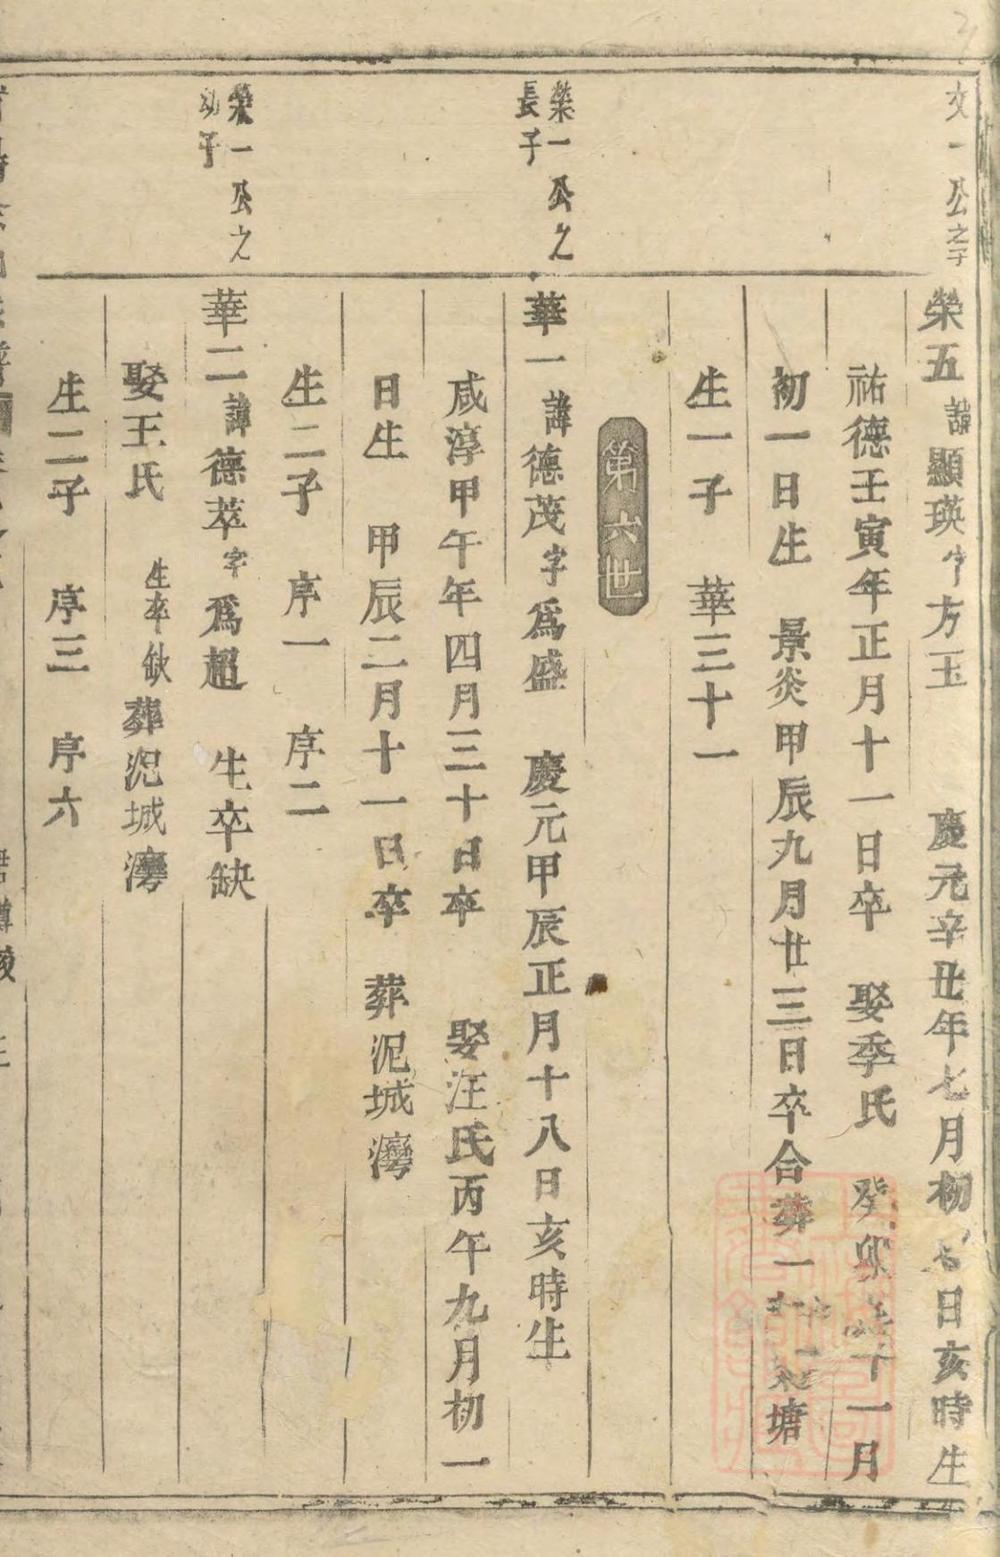 文一公之子
榮五諱顯瑛字方玉 慶元辛丑年七月初 日亥時生
祐德壬寅年正月十一日卒 娶季氏 癸卯 十一月
初一日生 景炎甲辰九月廿三日卒合葬一 塘
生一子 華三十一
第六世
榮一公之
長子
華一諱德茂字為盛 慶元甲辰正月十八日亥時生
咸淳甲午年四月三十日卒 娶汪氏丙午九月初一
日生 甲辰二月十一日卒 葬泥城灣
生二子 序一 序二
榮一公之
幼子
華二諱德萃字為超 生卒缺
娶王氏 生卒缺 葬泥城灣
生二子 序三 序六